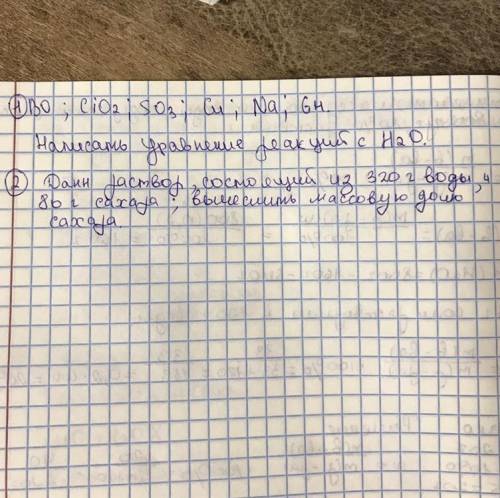 ① BO ; CiO2 ; SO3 ; Cu ; Na ; GH.
Написать уравнение реакций с H2O.
② Данн раствор, состоещий из 320 г воды, и
80 г сахара ; вычеслить массовую долю
сахара.